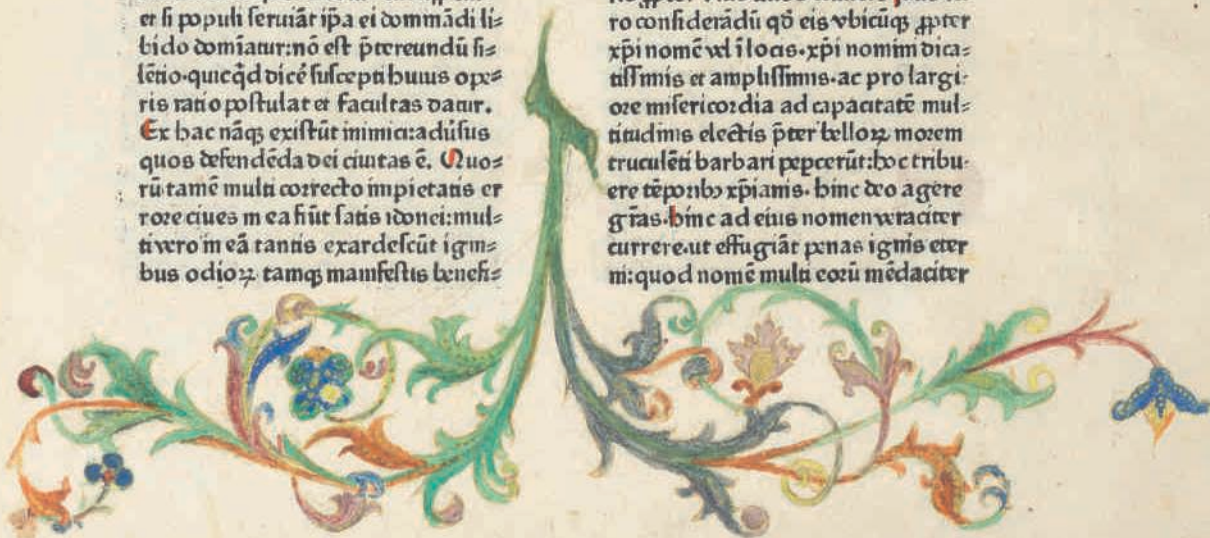 et si populi seruiāt ip̄a ei dommādi li⸗
bido domīatur:nō est p̄tereundū si⸗
lētio.quicq̄d dicē suscepti huius ope⸗
ris ratio postulat et facultas datur.
Ex hac nāqꝫ existūt inimici:aduʼsus
quos defendēda dei ciuitas ē. Quo⸗
rū tamē multi correcto impietatis er
rore ciues in ea fiūt satis idonei:mul⸗
ti vero in eā tantis exardescūt igni⸗
bus odioꝝ tamqꝫ manifestis benefi⸗
ro considerādū qd̄ eis vbicūqꝫ ꝓpter
xp̄i nomē vel ī locis.xp̄i nomini dica⸗
tissimis et amplissimis.ac pro largi⸗
ore misericordia ad capacitatē mul⸗
titudinis electis p̄ter belloꝝ morem
truculēti barbari peꝑcerūt:hoc tribu⸗
ere tēporibꝫ xp̄ianis. hinc deo agere
gr̄as.hinc ad eius nomen veraciter
currere.ut effugiāt penas ignis eter
ni:quod nomē multi eorū mēdaciter